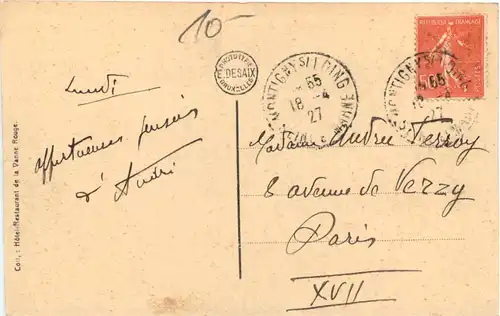 10-
Lundi
affectueuses pensées
d'André
Coll. : Hôtel-Restaurant de la Vanne Rouge.
PHOTOTYPIE
DESAIX
BRUXELLES
MONTIGNY S/ LOING
65
18-4
27
SEINE & MARNE
REPUBLIQUE FRANÇAISE
50
POSTES
65
18
27
Madame André Terroy
8 avenue de Verzy
Paris
XVII